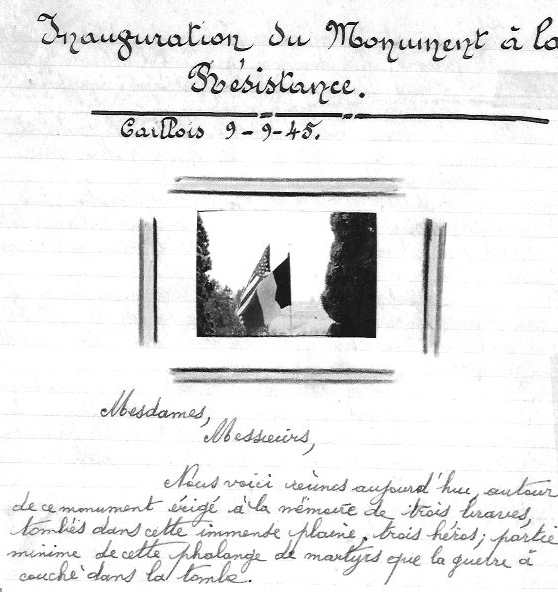 Inauguration du Monument à la
Résistance.
Caillois 9-9-45.
Mesdames,
Messieurs,
Nous voici réunis aujourd'hui, autour
de ce monument érigé à la mémoire de trois braves,
tombés dans cette immense plaine, trois héros; partie
minime de cette phalange de martyrs que la guerre a
couché dans la tombe.